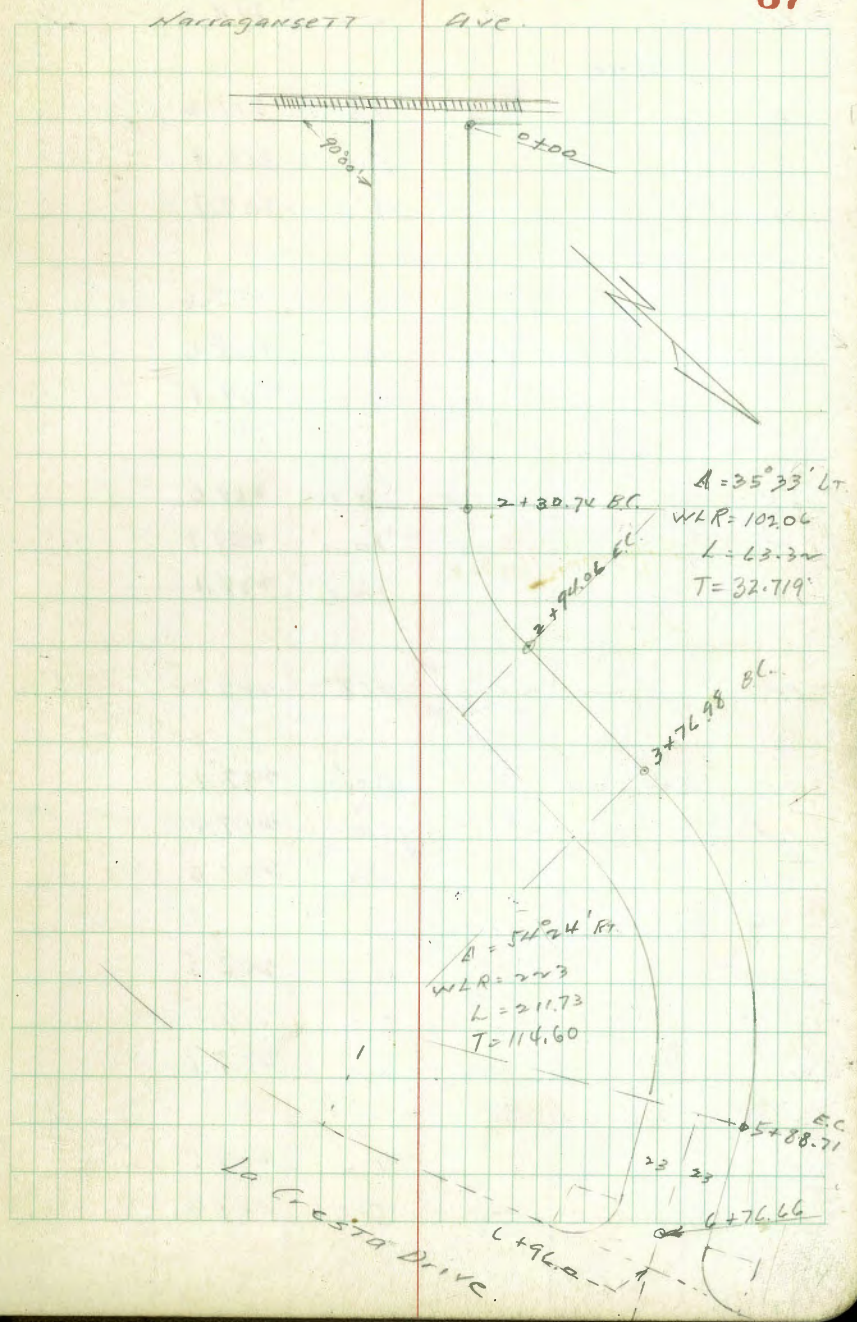 67
Narragansett Ave.
90°00'
0+00
N
2+30.74 B.C.
Δ = 35°33' LT
WLR = 102.06
L = 63.32
T = 32.719'
2+94.06 E.C.
3+76.98 B.C.
Δ = 54°24' RT.
WLR = 223
L = 211.73
T = 114.60
E.C.
5+88.71
23 23
6+76.66
6+96.0
La Cresta Drive